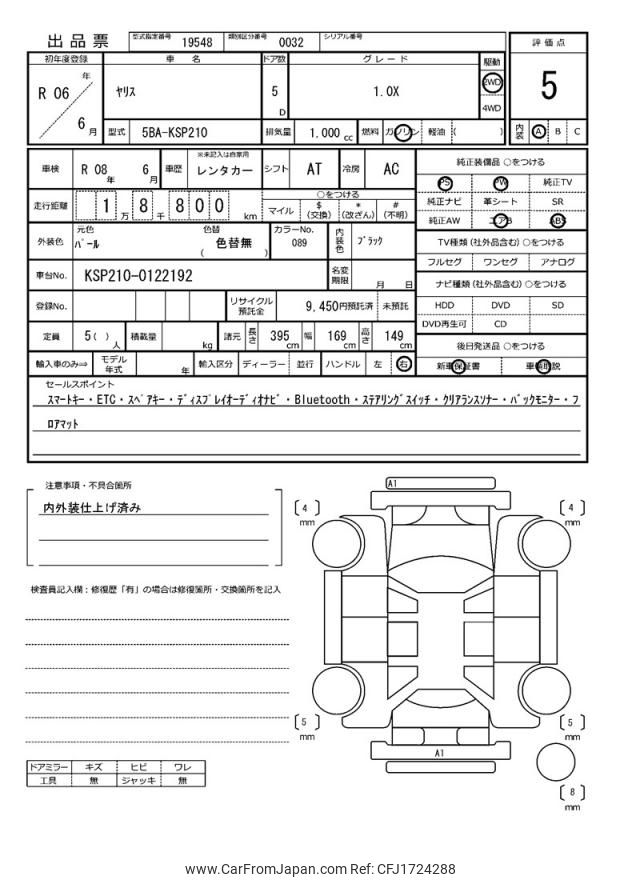 出品票 型式指定番号 19548 類別区分番号 0032 シリアル番号
初年度登録 車 名 ドア数 グレード 駆動 評価点
R 06 年 6 月 ヤリス 5 D 1.0X 2WD 4WD 5
型式 5BA-KSP210 排気量 1,000 cc 燃料 ガソリン 軽油 ( ) 内装 A B C
車検 R 08 年 6 月 車歴 ※未記入は自家用 レンタカー シフト AT 冷房 AC
純正装備品 ○をつける
PS PW 純正TV
純正ナビ 革シート SR
純正AW エアB ABS
走行距離 1 万 8 千 8 0 0 km
○をつける
マイル $ (交換) * (改ざん) # (不明)
外装色 元色 パール 色替 色替無 ( ) カラーNo. 089 内装色 ブラック
TV種類 (社外品含む) ○をつける
フルセグ ワンセグ アナログ
車台No. KSP210-0122192 名変期限 月 日
ナビ種類 (社外品含む) ○をつける
HDD DVD SD
DVD再生可 CD
登録No. リサイクル預託金 9,450円預託済 未預託
定員 5 ( ) 人 積載量 kg 諸元 長さ 395 cm 幅 169 cm 高さ 149 cm
後日発送品 ○をつける
新車保証書 車輌取説
輸入車のみ⇒ モデル年式 年 輸入区分 ディーラー 並行 ハンドル 左 右
セールスポイント
スマートキー・ETC・スペアキー・ディスプレイオーディオナビ・Bluetooth・ステアリングスイッチ・クリアランスソナー・バックモニター・フ
ロアマット
注意事項・不具合箇所
内外装仕上げ済み
検査員記入欄：修復歴「有」の場合は修復箇所・交換箇所を記入
A1
4 mm
4 mm
5 mm
5 mm
A1
8 mm
ドアミラー キズ ヒビ ワレ
工具 無 ジャッキ 無
www.CarFromJapan.com Ref: CFJ1724288